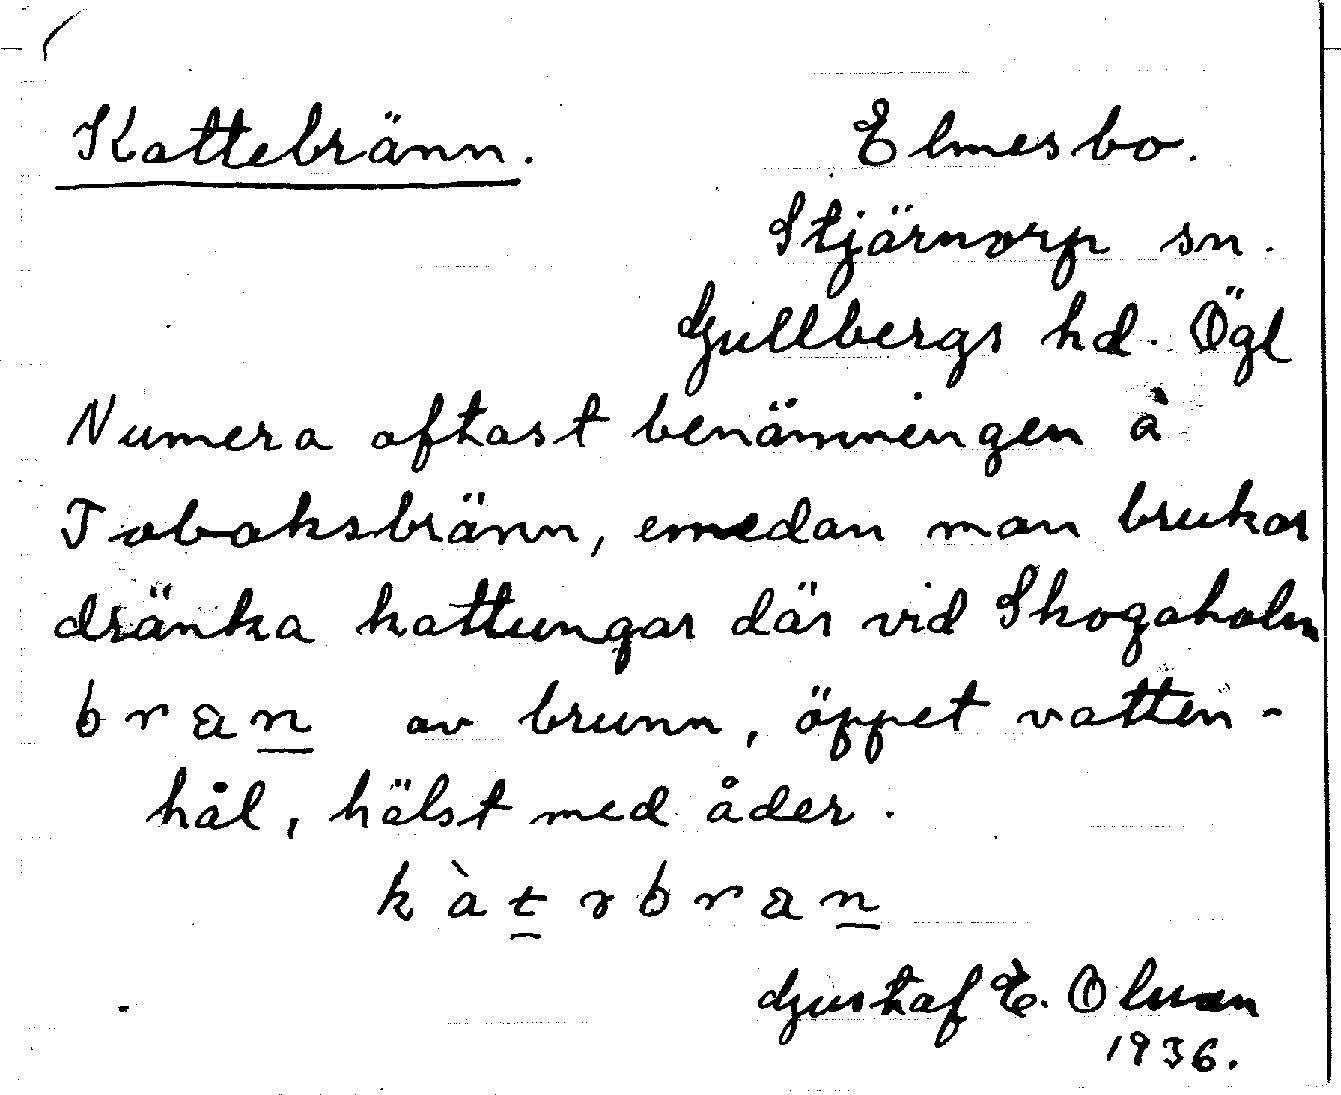 Kattebränn.
Elmesbo.
Stjärnorp sn.
Gullbergs hd. Ögl
Numera oftast benämningen å
Tobaksbränn, emedan man brukar
dränka kattungar där vid Skogaholm
bran av brunn, öppet vatten-
hål, hälst med åder.
kàtəbran
Gustaf E. Olsson
1936.